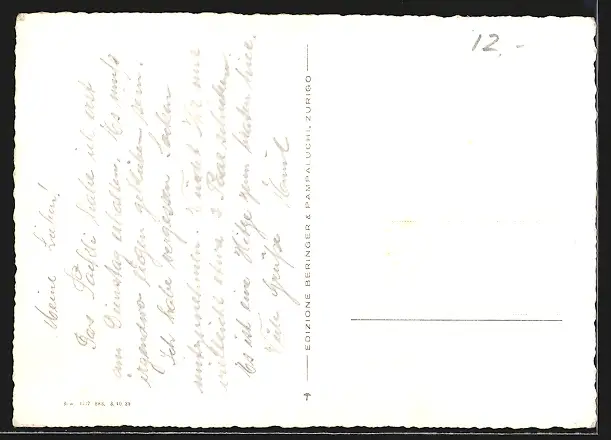 Meine Lieben!
Das Päckli habe ich erst
am Dienstag erhalten. Es muss
irgendwo liegen geblieben sein.
Ich habe vergessen Sachen
mitzunehmen. Würdet Ihr mir
vielleicht etwa 3 Paar schicken.
Es ist eine Hitze zum braten hier.
Viele Grüsse
EDIZIONE BERINGER & PAMPALUCHI, ZURIGO
12.-